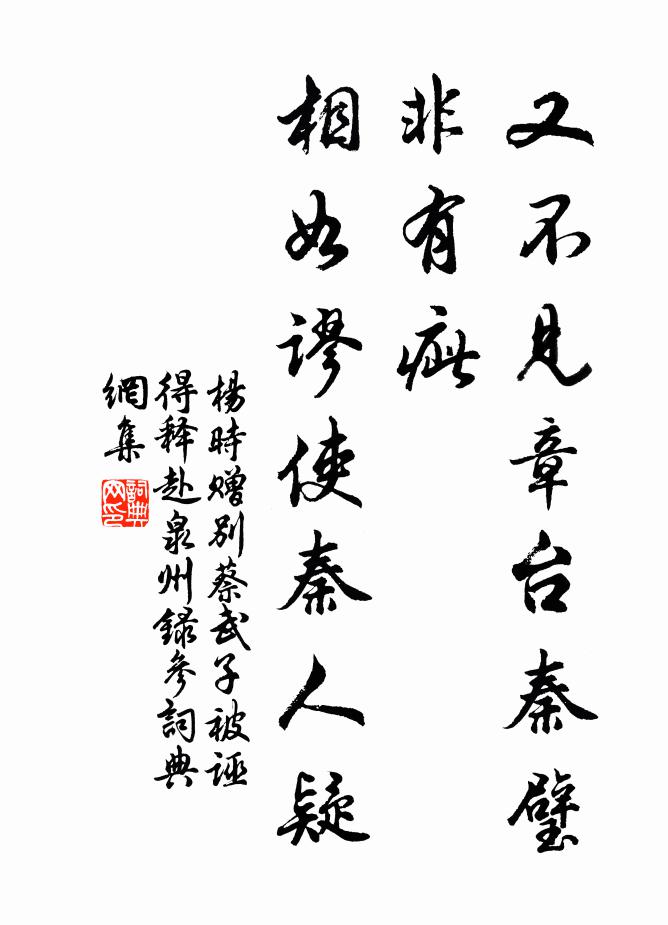 又不见章台秦璧
非有疵
相如謬使秦人疑
楊時赠别蔡武子被誣
得释赴泉州録參詞典
網集
詞典網印